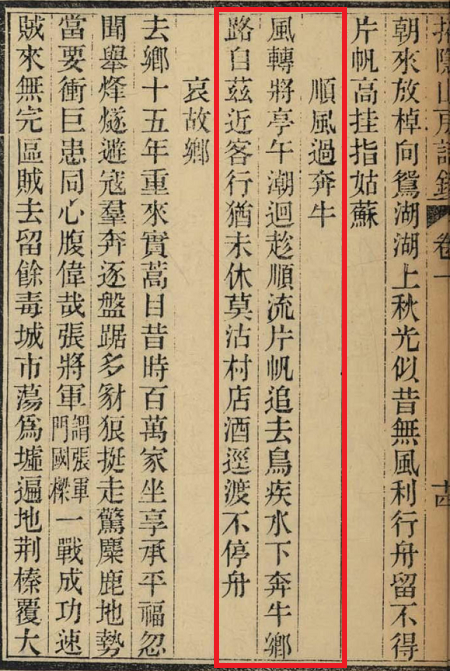 朝來放棹向鴛湖湖上秋光似昔無風利行舟留不得
片帆高挂指姑蘇
順風過奔牛
風轉將亭午潮迴趁順流片帆追去鳥疾水下奔牛鄉
路自茲近客行猶未休莫沽村店酒逕渡不停舟
哀故鄉
去鄉十五年重來實蒿目昔時百萬家坐享承平福忽
聞舉烽燧避寇羣奔逐盤踞多豺狼挺走驚麋鹿地勢
當要衝巨患同心腹偉哉張將軍謂張軍門國樑一戰成功速
賊來無完區賊去留餘毒城市蕩爲墟遍地荆榛覆大